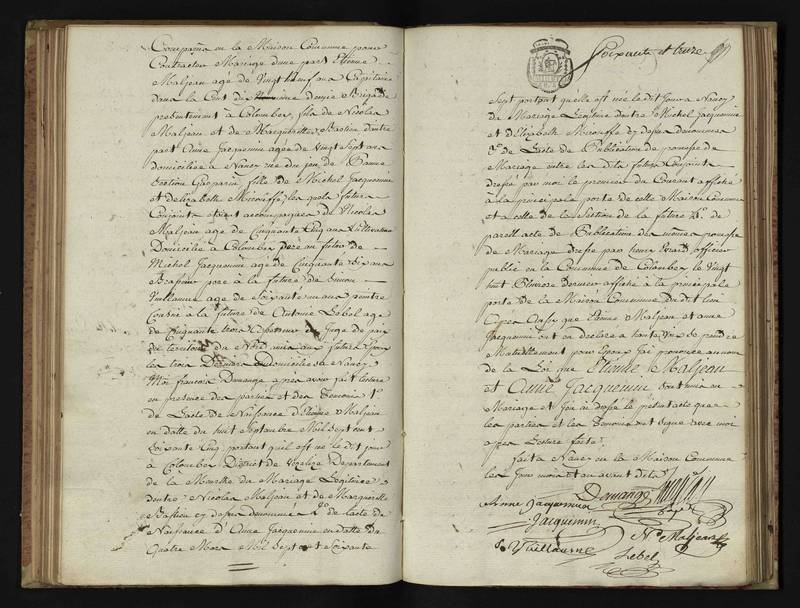 Comparus en la Maison Commune pour
Contracter Mariage d'une part Etienne
Maljean agé de Vingt huit ans Capitaine
dans la Cent dixieme demie Brigade
présentement à Colombey, fils de Nicolas
Maljean et de Margueritte Bastien d'autre
part Anne Jacquemin agée de Vingt Sept ans
domiciliée à Nancy rue du
Section fille de Michel Jacquemin
et d'Elizabeth les quels futurs
Conjoints étoient accompagnés de Nicolas
Maljean agé de Cinquante Cinq ans Cultivateur
Domicilié à Colombey pere au futur de
Michel Jacquemin agé de Cinquante Six ans
Brasseur pere à la future de Simon
Vuillaume agé de Soixante neuf ans peintre
Cousin à la future de Antoine Lebel agé
de Cinquante trois ans Juge de paix
du territoire de ami au futur Epoux
les trois Derniers Domiciliés à Nancy
Moi francois Demange apres avoir fait lecture
en presence des parties et des Temoins 1°
de l'acte de Naissance d'Etienne Maljean
en datte du huit Septembre Mil Sept cent
Soixante Cinq portant qu'il est né le dit jour
à Colombey District de Vezelize Departement
de la Meurthe du Mariage Légitime
d'entre Nicolas Maljean et de Margueritte
Bastien cy dessus denommés 2° de l'acte de
Naissance d'Anne Jacquemin en datte du
Quatre Mars Mil Sept cent Soixante
Soixante et treize
Sept portant qu'elle est née le dit jour à Nancy
du Mariage Légitime d'entre Michel Jacquemin
et d'Elizabeth cy dessus denommés
3° de l'acte de Publication de promesse de
Mariage entre les dits futurs Conjoints
dressé par moi le premier du Courant affiché
à la principale porte de cette Maison Commune
et à celle de la Section de la future 4° de
pareil acte de Publication des mêmes promesses
de Mariage dressé par officier
public en la Commune de Colombey le Vingt
huit Pluviose dernier affiché à la principale
porte de la Maison Commune dudit lieu
Après Aussi que Etienne Maljean et Anne
Jacquemin ont eu déclaré à haute voix se prendre
Mutuellement pour Epoux j'ai prononcé au nom
de la Loi que Etienne Maljean
et Anne Jacquemin sont unis en
Mariage et j'en ai dressé le présent acte que
les parties et les Temoins ont signé avec moi
apres Lecture faitte
fait à Nancy en la Maison Commune
les jour mois et an avant dits
Demange
Anne Jacquemin
Jacquemin
Ns Maljean
S Vuillaume
Lebel